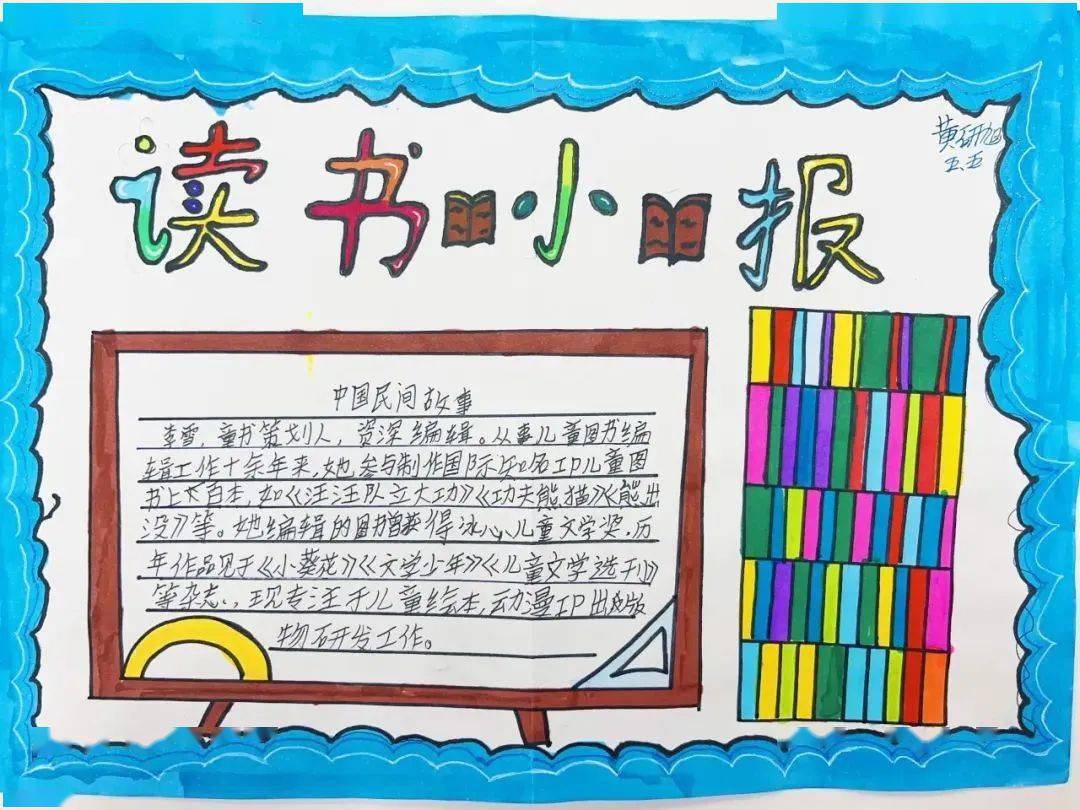 黄研旭
五.五
读书小报
中国民间故事
李雪,童书策划人,资深编辑。从事儿童图书编
辑工作十余年来,她参与制作国际知名IP儿童图
书上百本,如《汪汪队立大功》《功夫熊猫》《熊出
没》等。她编辑的图书曾获得冰心儿童文学奖,历
年作品见于《小葵花》《文学少年》《儿童文学选刊》
等杂志,现专注于儿童绘本,动漫IP出版
物研发工作。